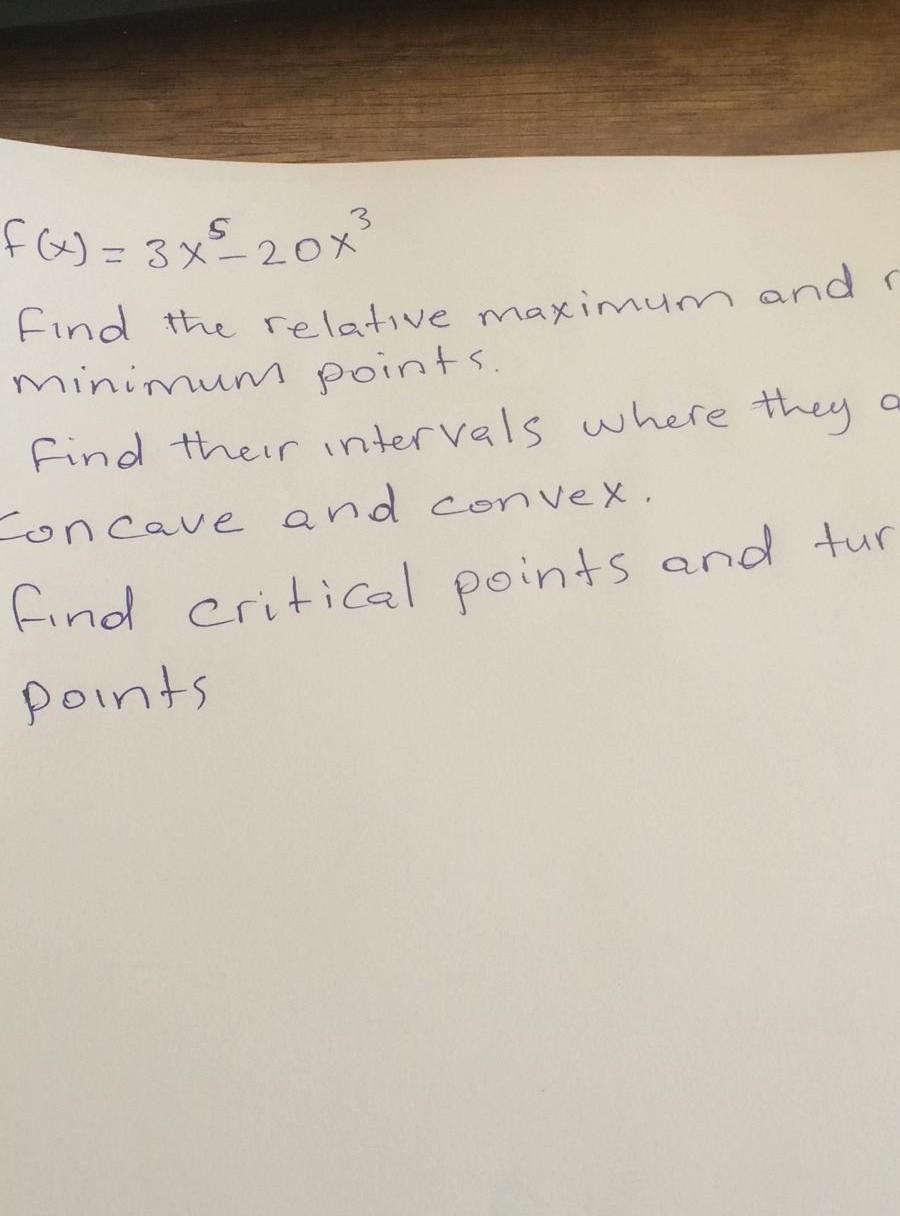 f(x) = 3x⁵ - 20x³
Find the relative maximum and
minimum points.
Find their intervals where they
concave and convex.
find critical points and
points